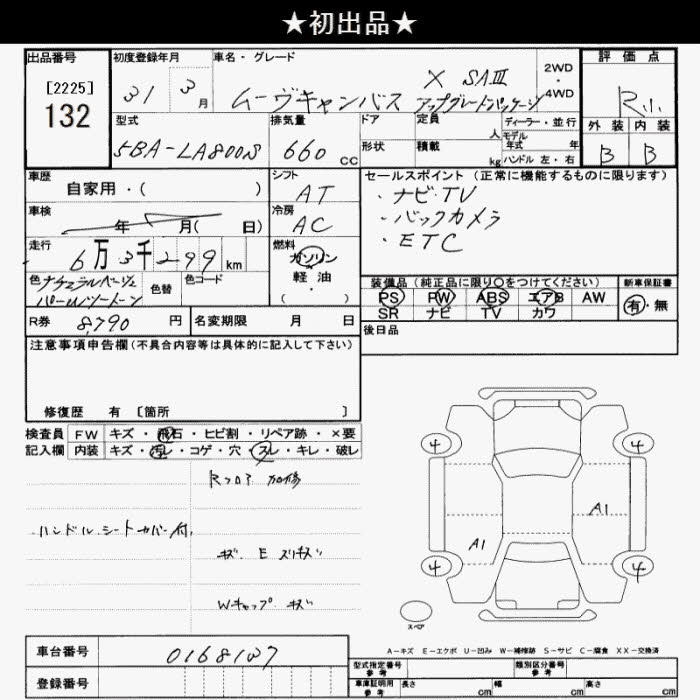 ★初出品★
出品番号
[2225]
132
初度登録年月
31 3 月
車名・グレード
ムーヴキャンバス X SAⅢ
アップグレードパッケージ
2WD
・
4WD
評価点
R小
外装 内装
B B
型式
5BA-LA800S
排気量
660 cc
ドア
形状
定員
人
積載
kg
ディーラー・並行
モデル
年式 年
ハンドル 左・右
車歴
自家用・( )
シフト
AT
セールスポイント(正常に機能するものに限ります)
・ナビ・TV
・バックカメラ
・ETC
車検
年 月( 日)
冷房
AC
走行
6万3千299 km
燃料
ガソリン
軽油
・
( )
色 ナチュラルベージュ
パールツートーン
色替
色コード
装備品(純正品に限り○をつけてください)
PS PW ABS エアB AW
SR ナビ TV カワ
新車保証書
有・無
R券 8,790 円
名変期限 月 日
後日品
注意事項申告欄(不具合内容等は具体的に記入して下さい)
修復歴 有 〔箇所 〕
検査員
記入欄
FW キズ・飛石・ヒビ割・リペア跡・×要
内装 キズ・汚レ・コゲ・穴・スレ・キレ・破レ
Rフロア 加修
ハンドル、シートカバー付
キズ E スリキズ
Wキャップ キズ
4 4
A1
A1
4 4
スペア
A-キズ E-エクボ U-凹み W-補修跡 S-サビ C-腐食 XX-交換済
車台番号 0168127
登録番号
型式指定番号
参考
類別区分番号
参考
車庫証明用
参考
長さ cm 幅 cm 高さ cm